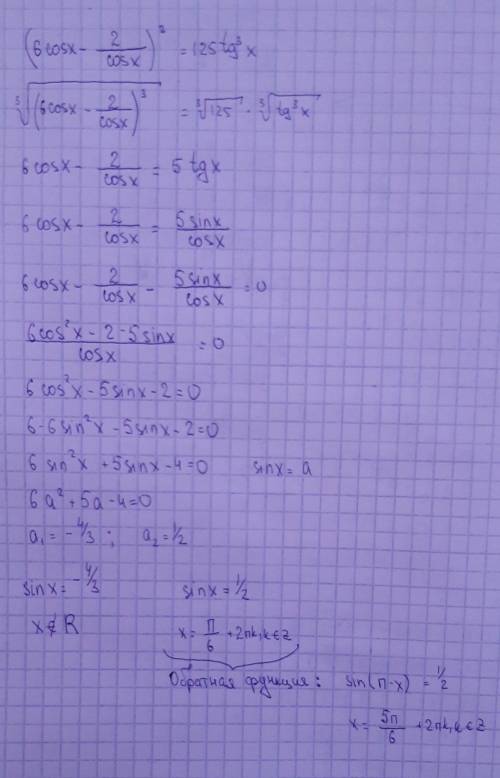 (6cosx - 2/cosx)³ = 125tg³x
³√(6cosx - 2/cosx)³ = ³√125 · ³√tg³x
6cosx - 2/cosx = 5tgx
6cosx - 2/cosx = 5sinx/cosx
6cosx - 2/cosx - 5sinx/cosx = 0
6cos²x - 2 - 5sinx/cosx = 0
6cos²x - 5sinx - 2 = 0
6-6sin²x - 5sinx - 2 = 0
6sin²x + 5sinx - 4 = 0 sinx = a
6a² + 5a - 4 = 0
a₁ = -4/3 ; a₂ = 1/2
sinx = -4/3 sinx = 1/2
x∉R x = П/6 + 2пk, k∈Z
Обратная функция: sin(п-x) = 1/2
x = 5п/6 + 2пk, k∈Z